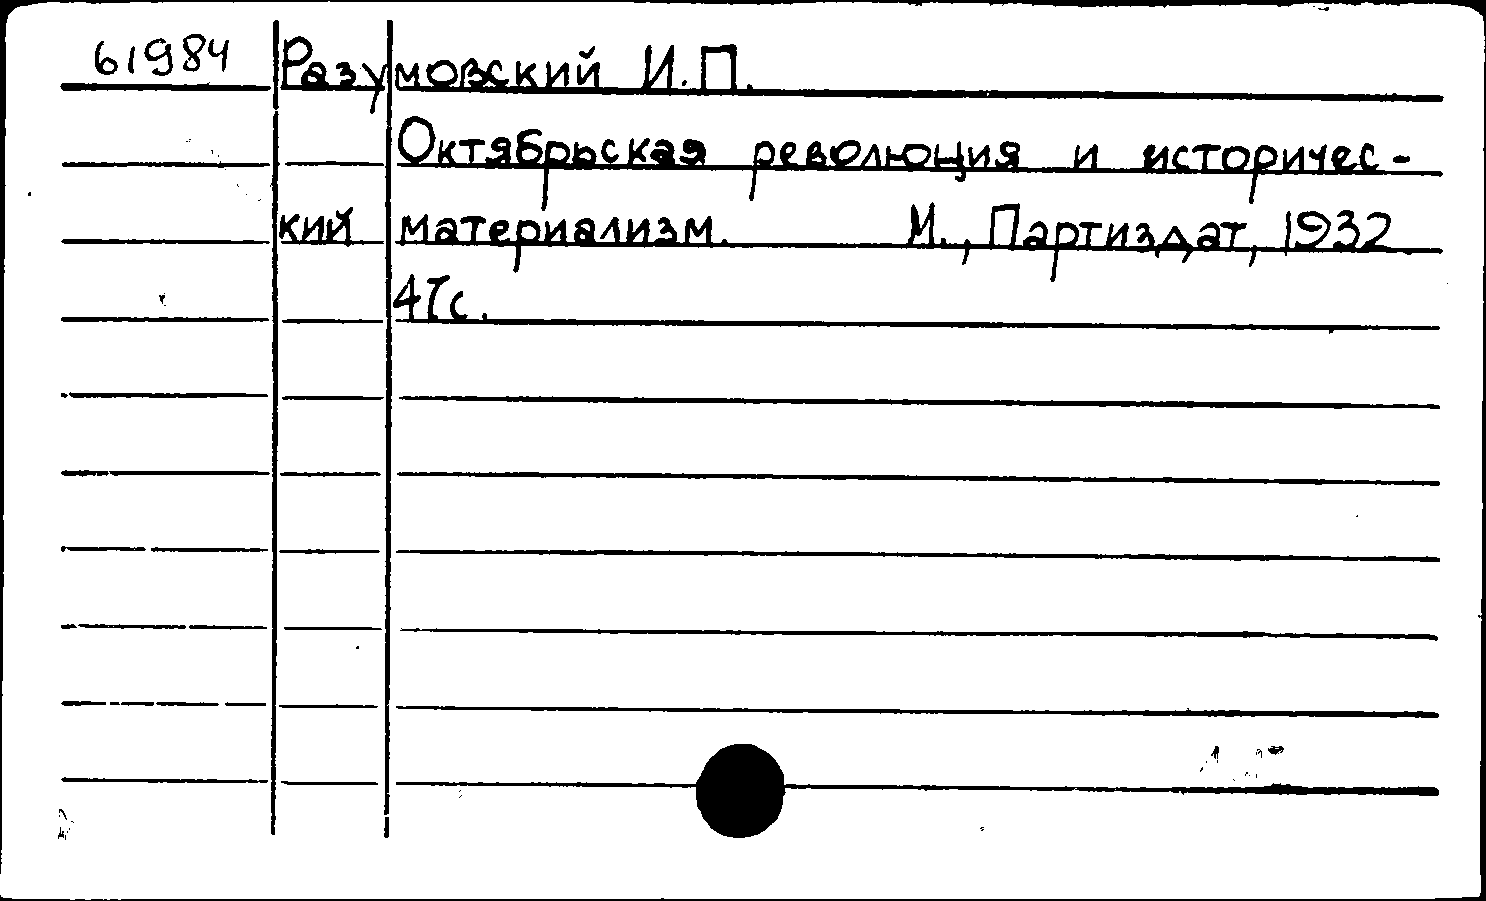 61984 Разумовский И.П.
Октябрьская революция и историчес-
кий материализм. М., Партиздат, 1932
47с.